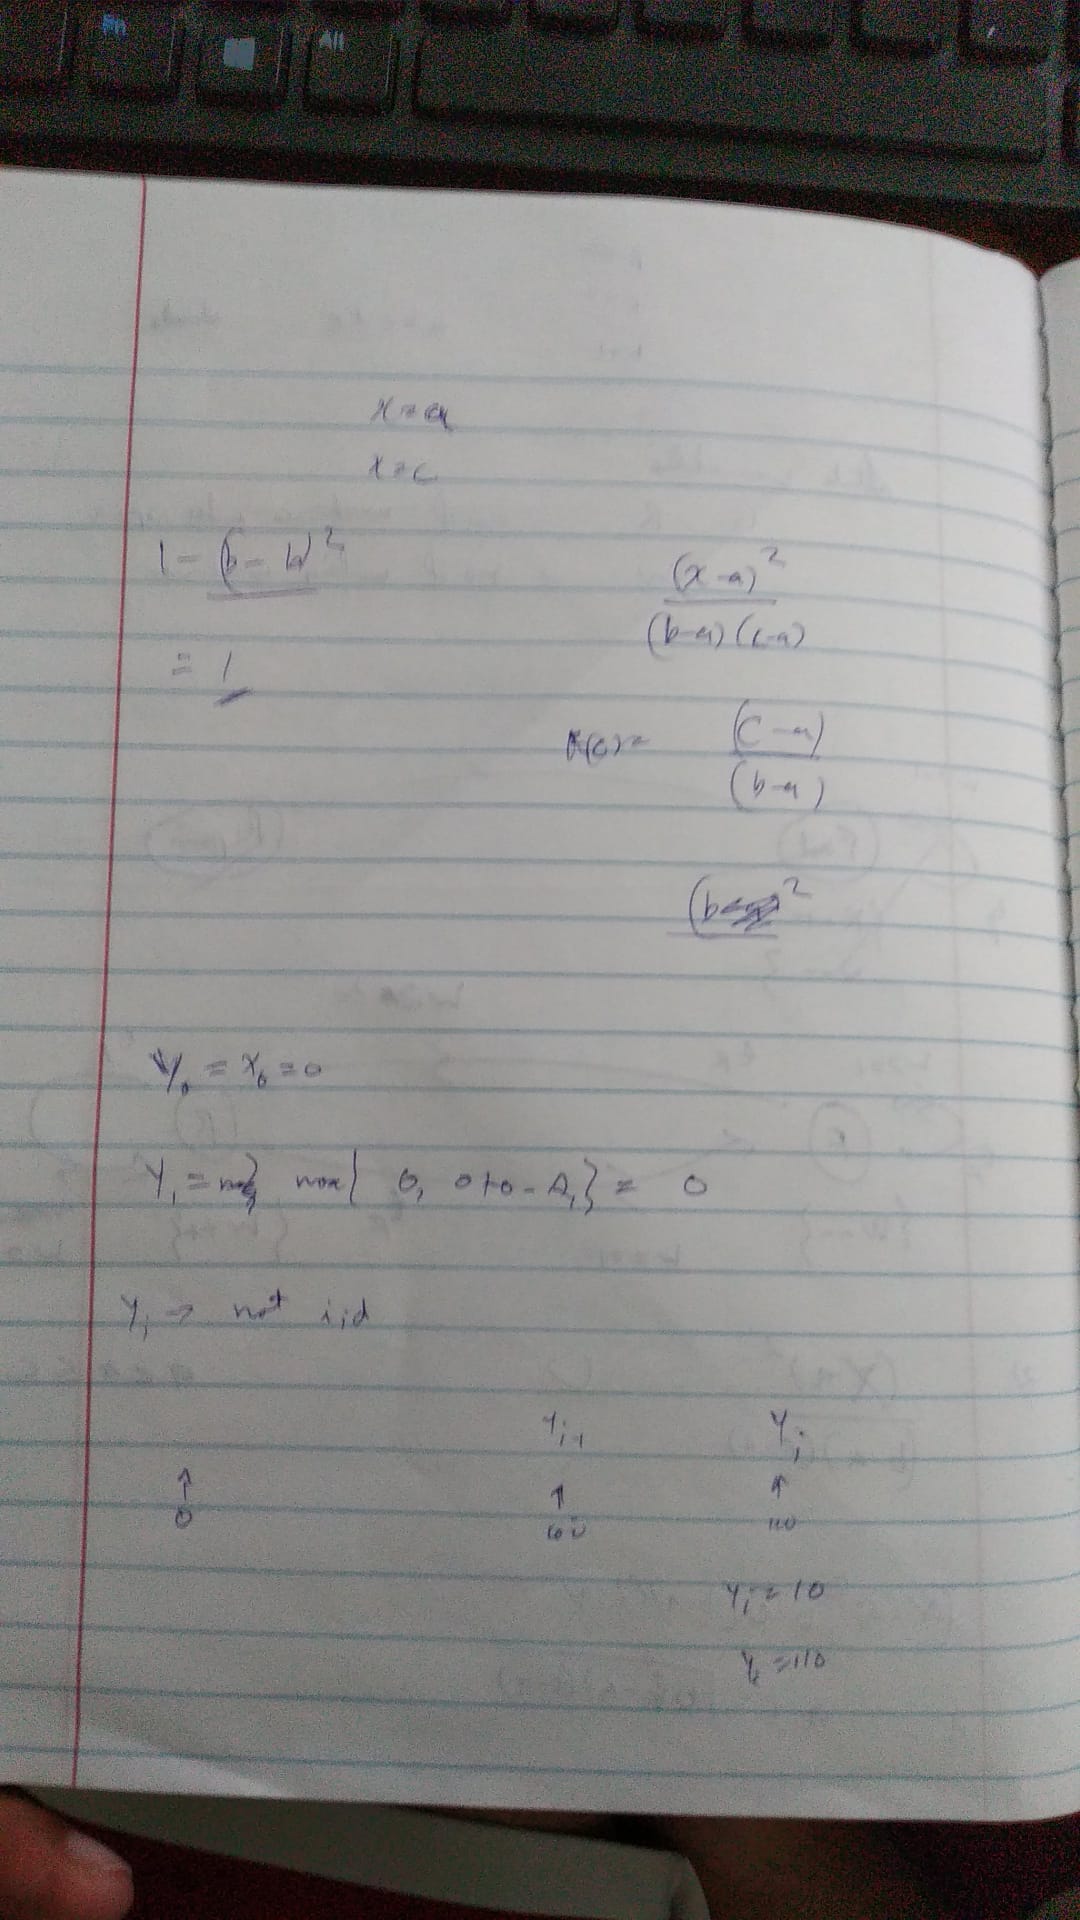 Fn
Alt
x = a
x = c
1 - (b - b)²
= 1
(x - a)²
(b-a) (c-a)
F(c) = (c - a)
(b - a)
(b
Y₀ = X₀ = 0
Y₁ = max{ 0, 0+0 - A₁} = 0
Yᵢ → not iid
Yᵢ₋₁ Yᵢ
↑ ↑ ↑
0 100 110
Yᵢ = 10
= 110